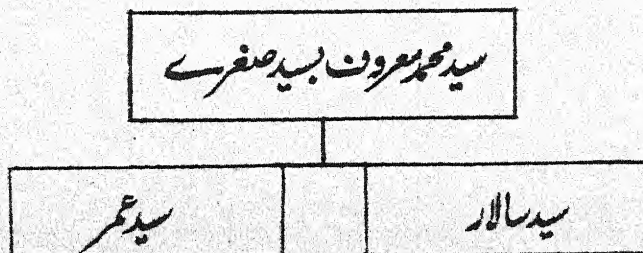 سید محمد معروف بسید صغرے
سید سالار
سید عمر